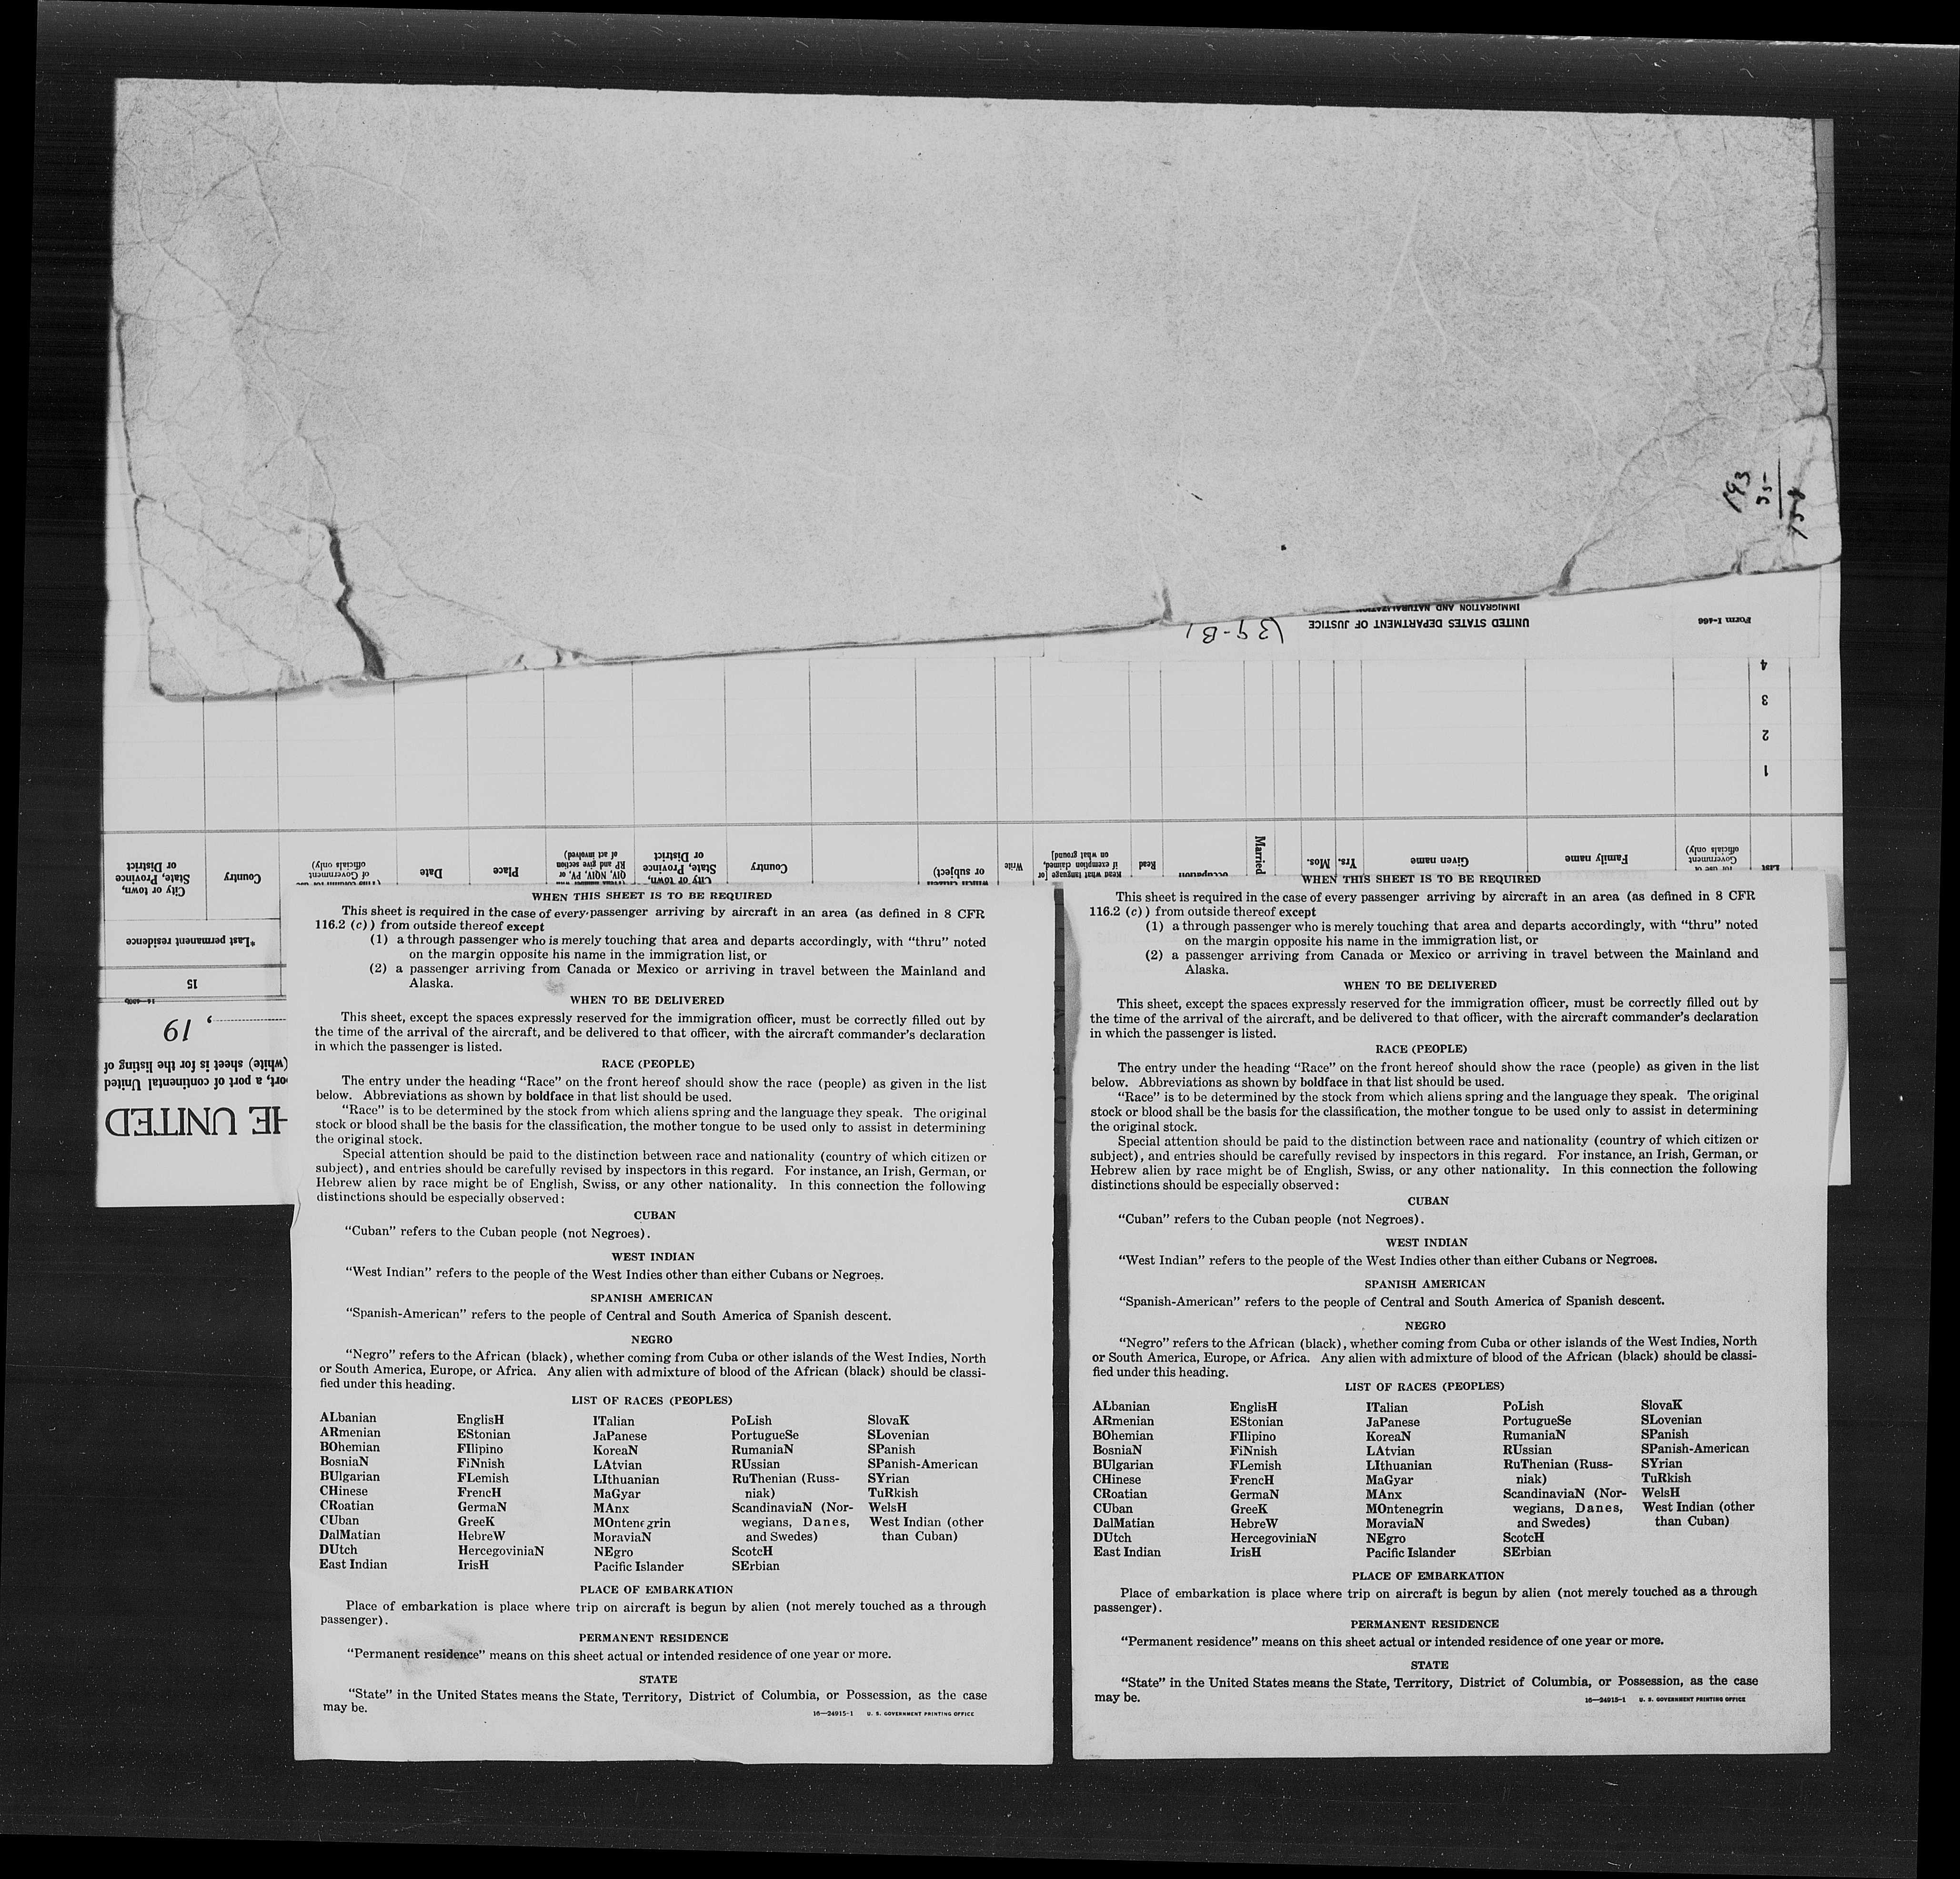 193
35
158
Form I-466
UNITED STATES DEPARTMENT OF JUSTICE
IMMIGRATION AND
(39-B)
4
3
2
1
List
for use of
Government
officials only)
Family name
Given name
Yrs.
Mos.
Married
Read
Read what language [or
if exemption claimed,
on what ground]
Write
which citizen
or subject)
Country
City or town,
State, Province
or District
QIV, NQIV, PV, or
RP and give section
of act involved)
Place
Date
(This column for use
of Government
officials only)
Country
City or town,
State, Province
or District
*Last permanent residence
15
, 19
(white) sheet is for the listing of
ort, a port of continental United
HE UNITED
WHEN THIS SHEET IS TO BE REQUIRED
This sheet is required in the case of every passenger arriving by aircraft in an area (as defined in 8 CFR
116.2 (c)) from outside thereof except
(1) a through passenger who is merely touching that area and departs accordingly, with “thru” noted
on the margin opposite his name in the immigration list, or
(2) a passenger arriving from Canada or Mexico or arriving in travel between the Mainland and
Alaska.
WHEN TO BE DELIVERED
This sheet, except the spaces expressly reserved for the immigration officer, must be correctly filled out by
the time of the arrival of the aircraft, and be delivered to that officer, with the aircraft commander's declaration
in which the passenger is listed.
RACE (PEOPLE)
The entry under the heading “Race” on the front hereof should show the race (people) as given in the list
below. Abbreviations as shown by boldface in that list should be used.
“Race” is to be determined by the stock from which aliens spring and the language they speak. The original
stock or blood shall be the basis for the classification, the mother tongue to be used only to assist in determining
the original stock.
Special attention should be paid to the distinction between race and nationality (country of which citizen or
subject), and entries should be carefully revised by inspectors in this regard. For instance, an Irish, German, or
Hebrew alien by race might be of English, Swiss, or any other nationality. In this connection the following
distinctions should be especially observed:
CUBAN
“Cuban” refers to the Cuban people (not Negroes).
WEST INDIAN
“West Indian” refers to the people of the West Indies other than either Cubans or Negroes.
SPANISH AMERICAN
“Spanish-American” refers to the people of Central and South America of Spanish descent.
NEGRO
“Negro” refers to the African (black), whether coming from Cuba or other islands of the West Indies, North
or South America, Europe, or Africa. Any alien with admixture of blood of the African (black) should be classi-
fied under this heading.
LIST OF RACES (PEOPLES)
ALbanian
ARmenian
BOhemian
BosniaN
BUlgarian
CHinese
CRoatian
CUban
DalMatian
DUtch
East Indian
EnglisH
EStonian
FIlipino
FiNnish
FLemish
FrencH
GermaN
GreeK
HebreW
HercegoviniaN
IrisH
ITalian
JaPanese
KoreaN
LAtvian
LIthuanian
MaGyar
MAnx
MOntenegrin
MoraviaN
NEgro
Pacific Islander
PoLish
PortugueSe
RumaniaN
RUssian
RuThenian (Russ-
niak)
ScandinaviaN (Nor-
wegians, Danes,
and Swedes)
ScotcH
SErbian
SlovaK
SLovenian
SPanish
SPanish-American
SYrian
TuRkish
WelsH
West Indian (other
than Cuban)
PLACE OF EMBARKATION
Place of embarkation is place where trip on aircraft is begun by alien (not merely touched as a through
passenger).
PERMANENT RESIDENCE
“Permanent residence” means on this sheet actual or intended residence of one year or more.
STATE
“State” in the United States means the State, Territory, District of Columbia, or Possession, as the case
may be.
16—24915-1 U. S. GOVERNMENT PRINTING OFFICE
WHEN THIS SHEET IS TO BE REQUIRED
This sheet is required in the case of every passenger arriving by aircraft in an area (as defined in 8 CFR
116.2 (c)) from outside thereof except
(1) a through passenger who is merely touching that area and departs accordingly, with “thru” noted
on the margin opposite his name in the immigration list, or
(2) a passenger arriving from Canada or Mexico or arriving in travel between the Mainland and
Alaska.
WHEN TO BE DELIVERED
This sheet, except the spaces expressly reserved for the immigration officer, must be correctly filled out by
the time of the arrival of the aircraft, and be delivered to that officer, with the aircraft commander's declaration
in which the passenger is listed.
RACE (PEOPLE)
The entry under the heading “Race” on the front hereof should show the race (people) as given in the list
below. Abbreviations as shown by boldface in that list should be used.
“Race” is to be determined by the stock from which aliens spring and the language they speak. The original
stock or blood shall be the basis for the classification, the mother tongue to be used only to assist in determining
the original stock.
Special attention should be paid to the distinction between race and nationality (country of which citizen or
subject), and entries should be carefully revised by inspectors in this regard. For instance, an Irish, German, or
Hebrew alien by race might be of English, Swiss, or any other nationality. In this connection the following
distinctions should be especially observed:
CUBAN
“Cuban” refers to the Cuban people (not Negroes).
WEST INDIAN
“West Indian” refers to the people of the West Indies other than either Cubans or Negroes.
SPANISH AMERICAN
“Spanish-American” refers to the people of Central and South America of Spanish descent.
NEGRO
“Negro” refers to the African (black), whether coming from Cuba or other islands of the West Indies, North
or South America, Europe, or Africa. Any alien with admixture of blood of the African (black) should be classi-
fied under this heading.
LIST OF RACES (PEOPLES)
ALbanian
ARmenian
BOhemian
BosniaN
BUlgarian
CHinese
CRoatian
CUban
DalMatian
DUtch
East Indian
EnglisH
EStonian
FIlipino
FiNnish
FLemish
FrencH
GermaN
GreeK
HebreW
HercegoviniaN
IrisH
ITalian
JaPanese
KoreaN
LAtvian
LIthuanian
MaGyar
MAnx
MOntenegrin
MoraviaN
NEgro
Pacific Islander
PoLish
PortugueSe
RumaniaN
RUssian
RuThenian (Russ-
niak)
ScandinaviaN (Nor-
wegians, Danes,
and Swedes)
ScotcH
SErbian
SlovaK
SLovenian
SPanish
SPanish-American
SYrian
TuRkish
WelsH
West Indian (other
than Cuban)
PLACE OF EMBARKATION
Place of embarkation is place where trip on aircraft is begun by alien (not merely touched as a through
passenger).
PERMANENT RESIDENCE
“Permanent residence” means on this sheet actual or intended residence of one year or more.
STATE
“State” in the United States means the State, Territory, District of Columbia, or Possession, as the case
may be.
16—24915-1 U. S. GOVERNMENT PRINTING OFFICE